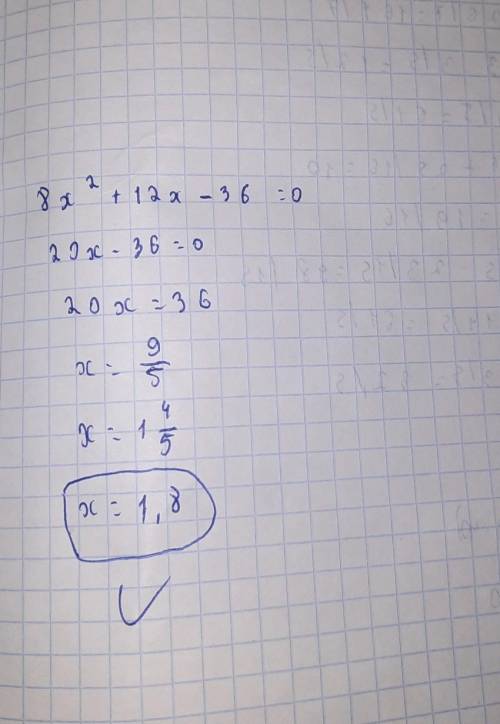 8x² + 12x - 36 = 0
20x - 36 = 0
20x = 36
x = 9/5
x = 1 4/5
x = 1,8